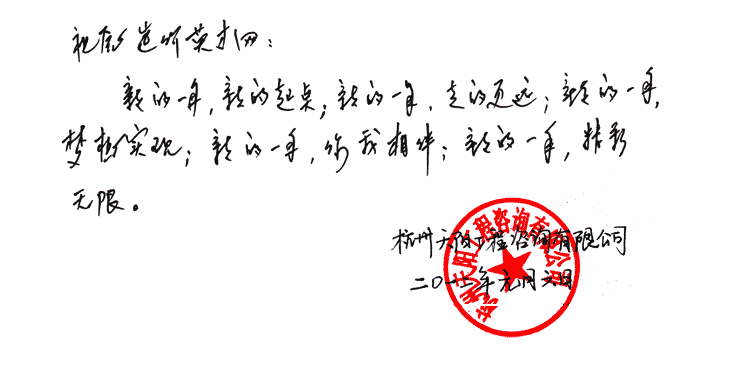 祝愿造价英才网：
新的一年，新的起点；新的一年，走的更远；新的一年，
梦想实现；新的一年，你我相伴；新的一年，精彩
无限。
杭州天阳工程咨询有限公司
二〇一二年元月
杭州天阳工程咨询有限公司